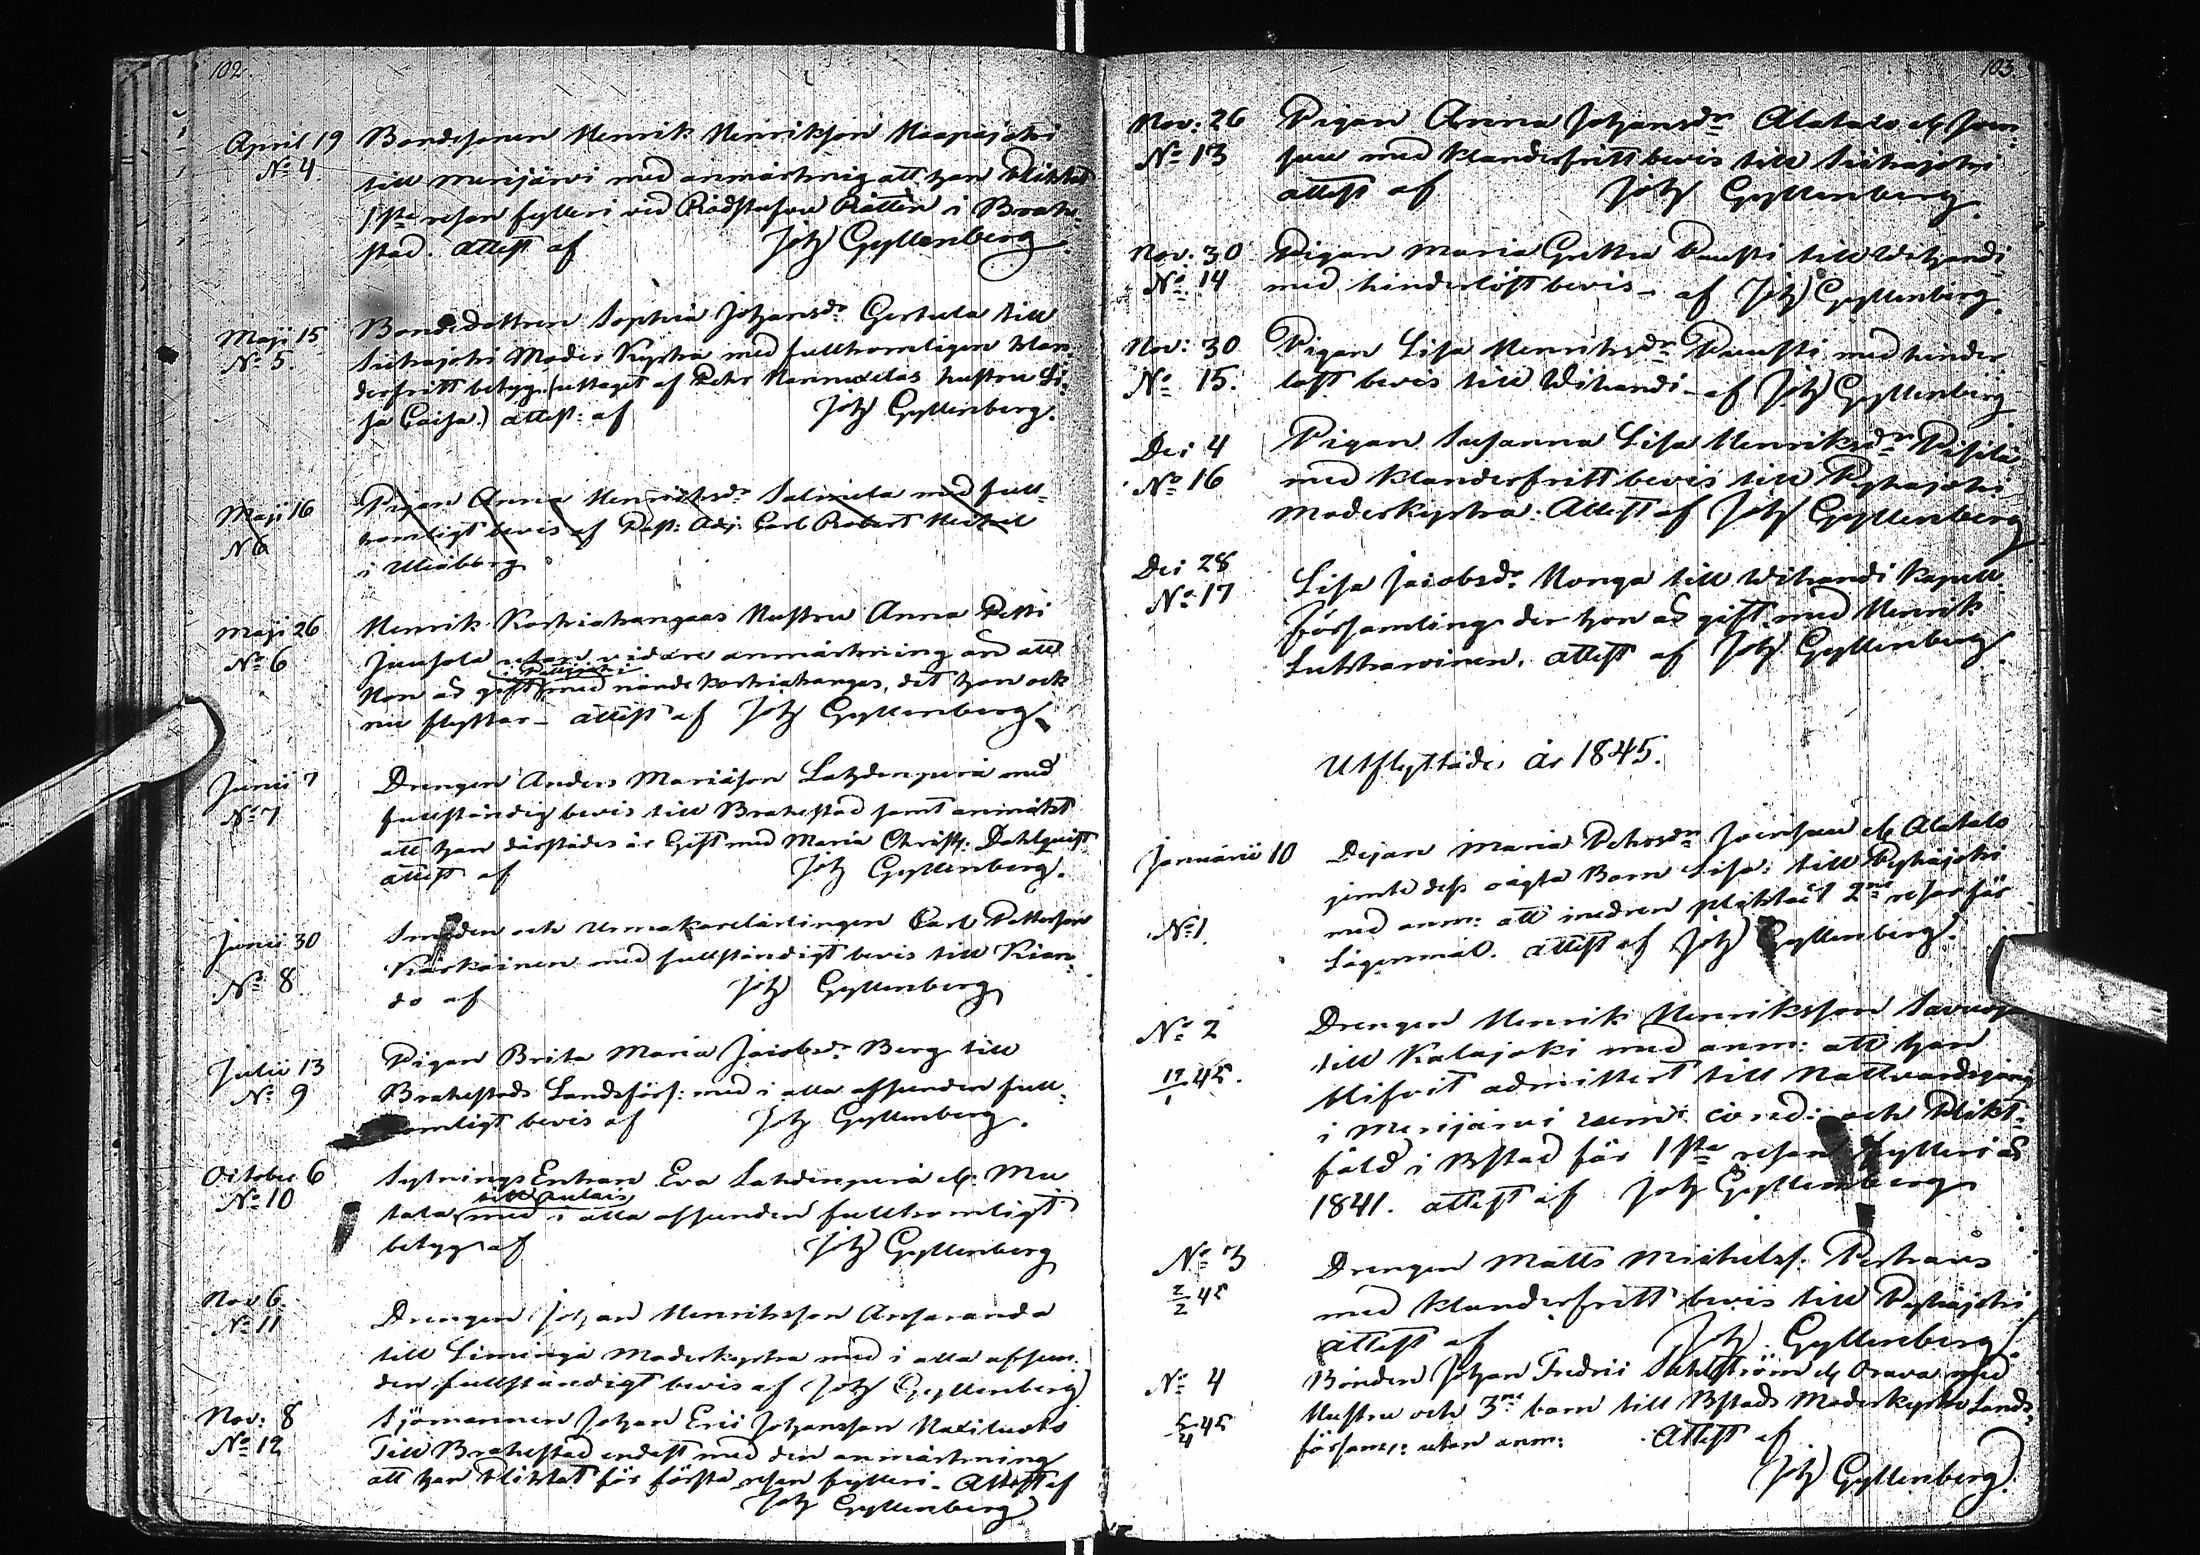 102.
April 19 Bondesonen Henrik Henrikson Haapajoki
No 4 till Merijärvi med anmärkning att han pliktat
1sta resan fylleri vid Rådstufvu Rätten i Brahe-
stad. attest af Joh Gyllenberg.
Maji 15 Bondedottren Sophia Johansdr Gertula till
No 5. Siikajoki Moder Kyrka med fullkomligen klan-
derfritt betyg. (uttaget af Pehr Hannuxelas hustru Li-
sa Caisa.) attest: af Joh Gyllenberg.
Maji 16 Pigan Anna Henriksdr Salmela med full-
N 6 komligt bevis af Past: Adj: Carl Robert
i Uleåborg
Maji 26 Henrik Korkiakangaas Hustru Anna Petti
No 6 Juusola utan vidare anmärkning än att
Hon är gift med nämde Korkiakangas, dit hon ock
nu flyttar – attest af Joh Gyllenberg
Junii 7 Drengen Anders Mariason Lahdenperä med
No 7 fullständig bevis till Brahestad samt anmäkt
att han därstädes är Gift med Maria Christ: Dahlquist
attest af Joh Gyllenberg.
Junii 30 Smeden och Urmakarelärlingen Carl Pettersson
No 8 Karkainen med fullständigt bevis till Kian-
do af Joh Gyllenberg
Julii 13 Pigan Brita Maria Jacobsdr Berg till
No 9 Brahestads Landsförs: med i alla afseenden full-
komligt bevis af Joh Gyllenberg.
October 6 Sytnings Enkan Eva Lahdenperä el. Mu
No 10 till Pulais
tala med i alla afseenden fullkomligt
betyg af Joh Gyllenberg
Nov 6.
No 11 Drengen Johan Henriksson Ansaranda
till Limingo Moderkyrka med i alla afseen-
den fullständigt bevis af Joh Gyllenberg
Nov: 8 Sjömannen Johan Eric Johansson
No 12 Till Brahestad endast med den anmärkning
att han pliktat för första resan fylleri – Attest af
Joh Gyllenberg
103.
Nov: 26 Pigan Anna Johansdr Alatalo el Joen-
No 13 suu med klanderfritt bevis till Siikajoki
attest af Joh Gyllenberg.
Nov: 30 Pigan Maria Gretha Paasti till Wihandi
No 14 med hinderlöst bevis – af Joh Gyllenberg.
Nov: 30 Pigan Lisa Henriksdr Paasti med hinder
No 15. löst bevis till Wihandi – af Joh Gyllenberg
Dec 4 Pigan Susanna Lisa Henriksdr
No 16 med klanderfritt bevis till Pyhäjoki
Moderkyrka. Attest af Joh Gyllenberg
Dec 28
No 17 Lisa Jacobsdr Honga till Wihandi Kapell
församling der hon är gift med Henrik
Lukkarinen. attest af Joh Gyllenberg
Utflyttade år 1845.
Januarii 10 Pigan Maria Pehrsdr Joensuu el Alatalo
jemte dess oägta Barn Lisa: till Pyhäjoki
No 1. med anm: att modren pliktat 2ne resor för
Lägersmål. attest af Joh Gyllenberg.
No 2 Drengen Henrik Henriksson
till Kalajoki med anm: att han
17/1 45. blifvit admittert till Nattvardsgång
i Merijärvi och plikt-
fäld i Bstad för 1sta resan fylleri år
1841. attest af Joh Gyllenberg
No 3 Drengen Matts Michelss.
2/2 45 med klanderfritt bevis till Pyhäjoki
attest af Joh Gyllenberg
No 4 Bonden Johan Fredric Dahlström el Orava med
5/4 45 Hustru och 3ne barn till Bstads Moderkyrko Lands-
församl: utan anm: Attest af
Joh Gyllenberg.